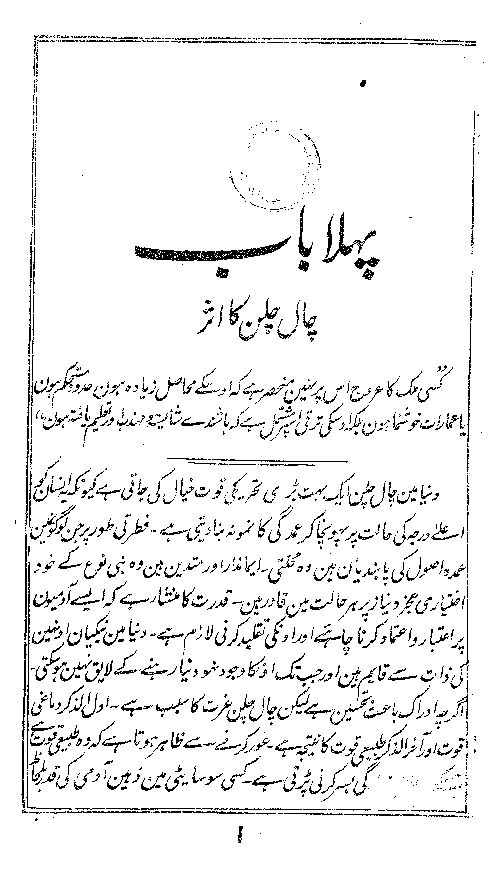 پہلا باب
چال چلن کا اثر
"کسی ملک کا عروج اس پر نہین منحصر ہے کہ اوسکے محاصل زیادہ ہون حدود مستحکم ہون
یا عمارات خوشنما ہون بلکہ اوسکی ترقی اسپر مشتمل ہے کہ باشندے شایستہ و مہذب اور تعلیم یافتہ ہون"
دنیا مین چال چلن ایک بہت بڑی تحریک کی قوت خیال کی جاتی ہے کیونکہ انسان کو
اعلے درجہ کی حالت پر پہونچا کر عمدگی کا نمونہ بنا دیتی ہے۔ فطرتی طور پر جن لوگونمین
عمدہ اصول کی پابندیان ہین وہ محنتی۔ ایماندار اور متدین ہین وہ بنی نوع کے خود
اختیاری عجز و نیاز پر ہر حالت مین قادر ہین۔ قدرت کا منشا ہے کہ ایسے آدمیون
پر اعتبار و اعتماد کرنا چاہئے اور اونکی تقلید کرنی لازم ہے۔ دنیا مین نیکیان اونہین
کی ذات سے قایم ہین اور جب تک اونکا وجود نہو دنیا رہنے کے لایق نہین ہو سکتی۔
اگرچہ ادراک باعث تحسین ہے لیکن چال چلن عزت کا سبب ہے۔ اول الذکر دماغی
قوت اور آخر الذکر طبیعی قوت کا نتیجہ ہے۔ غور کرنے سے ظاہر ہوتا ہے کہ وہ طبیعی قوت ہے
گی بسر کرنی پڑتی ہے۔ کسی سوسایٹی مین ذہین آدمی کی قدر بلحاظ
1